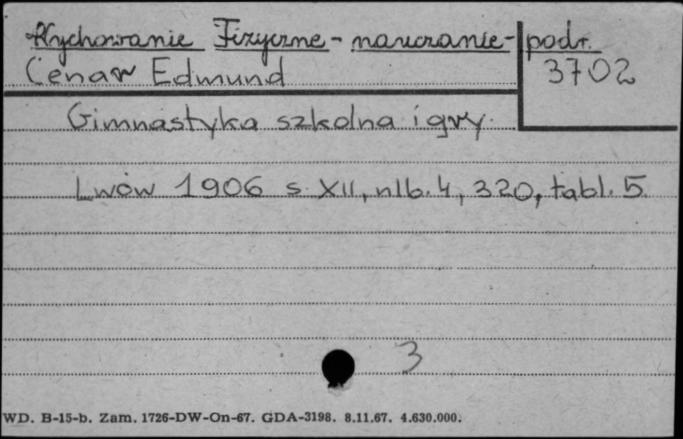 Wychowanie Fizyczne - nauczanie - podr.
Cenar Edmund
3702
Gimnastyka szkolna i gry.
Lwów 1906 s. XII, nlb. 4, 320, tabl. 5
3
WD. B-15-b. Zam. 1726-DW-On-67. GDA-3198. 8.11.67. 4.630.000.